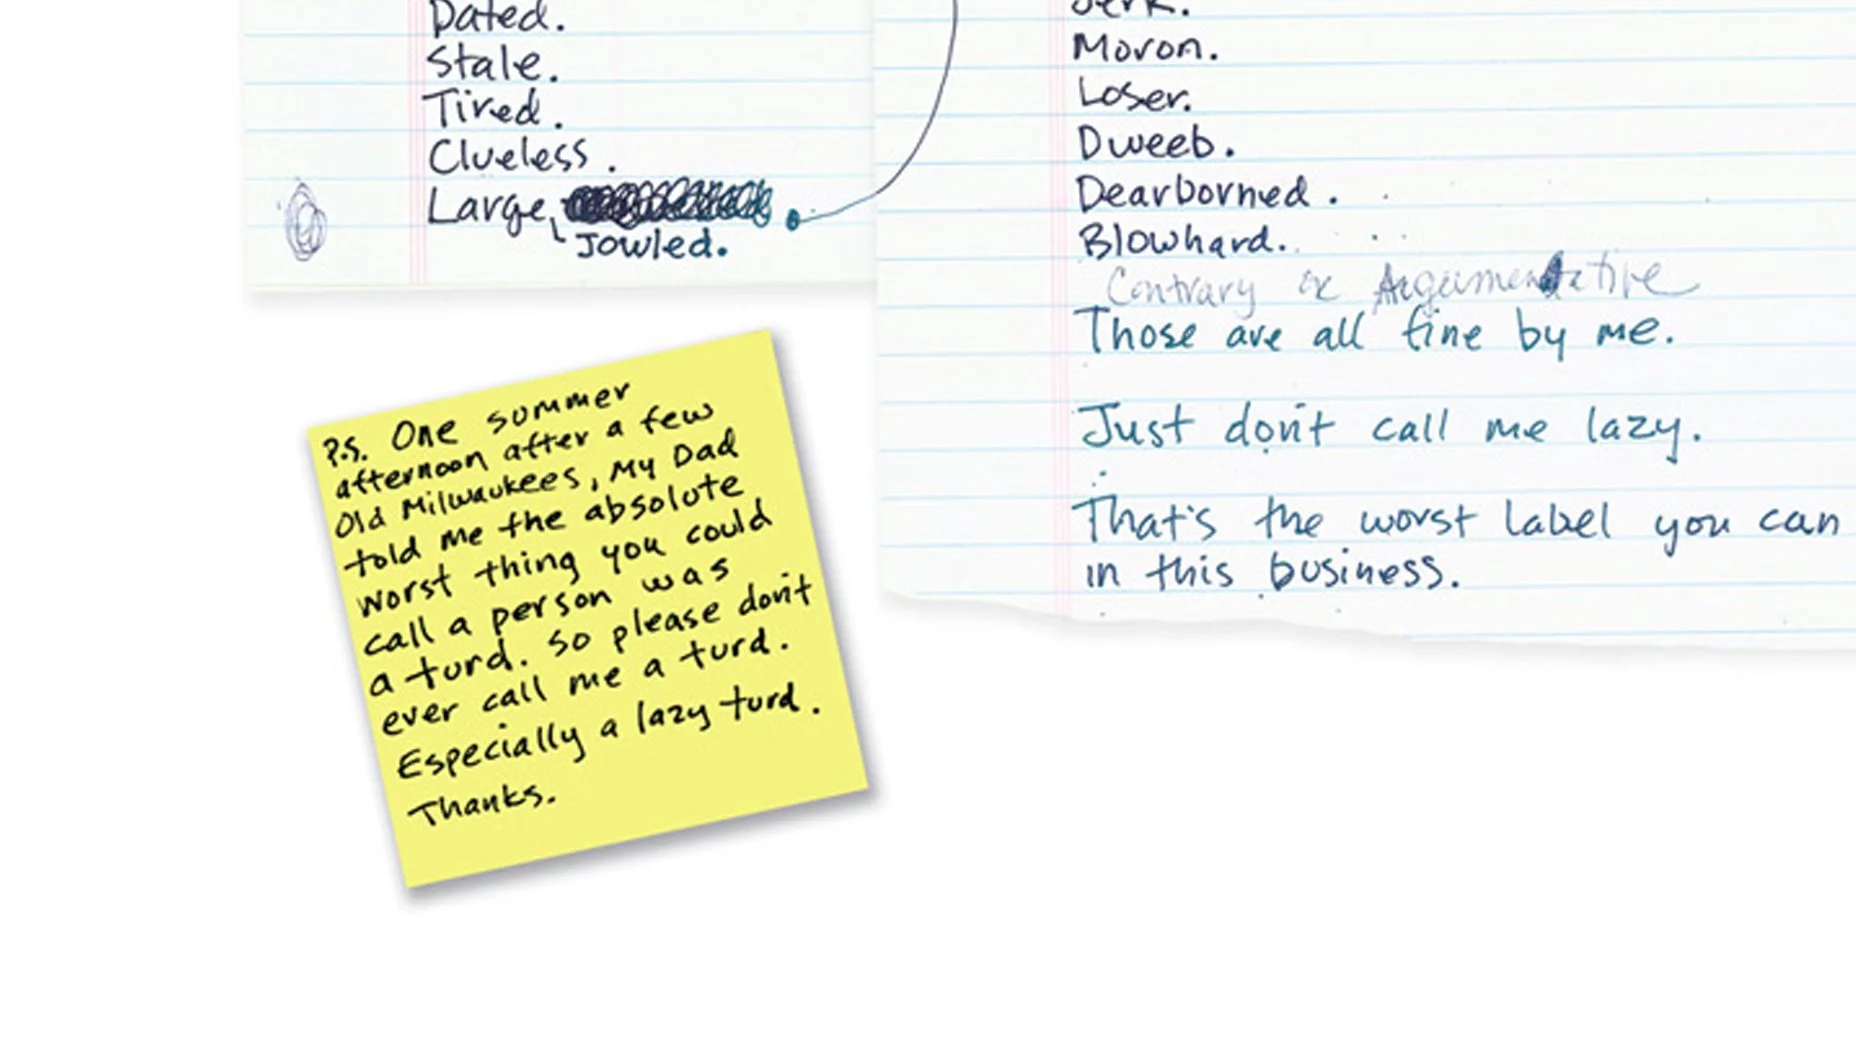 Dated.
Stale.
Tired.
Clueless.
Large
Jowled.
Jerk.
Moron.
Loser.
Dweeb.
Dearborned.
Blowhard.
Contrary or Argumentative
Those are all fine by me.
Just don't call me lazy.
That's the worst label you can
in this business.
P.S. One summer
afternoon after a few
Old Milwaukees, My Dad
told me the absolute
worst thing you could
call a person was
a turd. So please don't
ever call me a turd.
Especially a lazy turd.
Thanks.